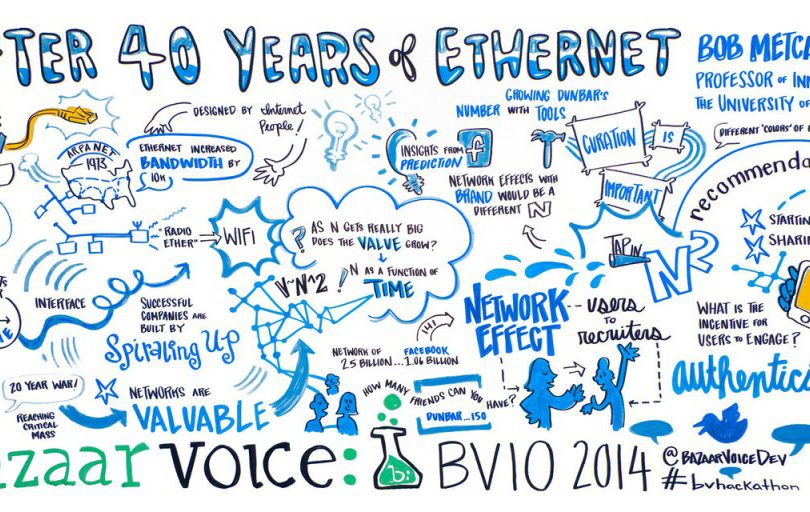 TER 40 YEARS of ETHERNET
BOB METCA
PROFESSOR OF IN
THE UNIVERSITY OF
DESIGNED BY Internet
People!
ARPANET
1973
ETHERNET INCREASED
BANDWIDTH BY
10K
"RADIO
ETHER"
WIFI
INSIGHTS FROM
PREDICTION
GROWING DUNBAR'S
NUMBER WITH TOOLS
f
NETWORK EFFECTS WITH
BRAND WOULD BE A
DIFFERENT N
CURATION
IS
IMPORTANT
DIFFERENT 'COLORS' OF
recommenda
STARTIN
SHARIN
? AS N GETS REALLY BIG
DOES THE VALUE GROW?
V~N^2 ! N AS A FUNCTION OF
TIME
TAP IN
N²
INTERFACE
SUCCESSFUL
COMPANIES ARE
BUILT BY
Spiraling Up
NETWORK
EFFECT
users
to
recruiters
WHAT IS THE
INCENTIVE FOR
USERS TO ENGAGE?
authentici
HI!
NETWORK OF
2.5 BILLION...
FACEBOOK
1.06 BILLION
20 YEAR WAR!
REACHING
CRITICAL
MASS
NETWORKS ARE
VALUABLE
HOW MANY
FRIENDS CAN YOU
HAVE?
DUNBAR...150
azaarvoice:
b:
BVIO 2014
@BAZAARVOICEDEV
#bvhackathon